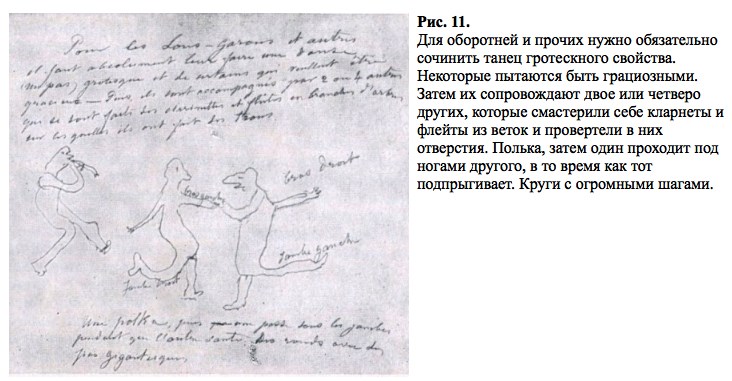 Pour les Loups-garous et autres
il faut absolument leur faire une danse
grotesque et de certains qui veulent être
gracieux — Puis ils sont accompagnés par 2 ou 4 autres
qui se sont faits des clarinettes et flûtes en branches d'arbre
sur lesquelles ils ont fait des trous
bras droit
bras gauche
jambe gauche
jambe droit
Une polka, puis un passe sous les jambes
pendant que l'autre saute. Des ronds avec des
pas gigantesques
Рис. 11.
Для оборотней и прочих нужно обязательно
сочинить танец гротескного свойства.
Некоторые пытаются быть грациозными.
Затем их сопровождают двое или четверо
других, которые смастерили себе кларнеты и
флейты из веток и провертели в них
отверстия. Полька, затем один проходит под
ногами другого, в то время как тот
подпрыгивает. Круги с огромными шагами.